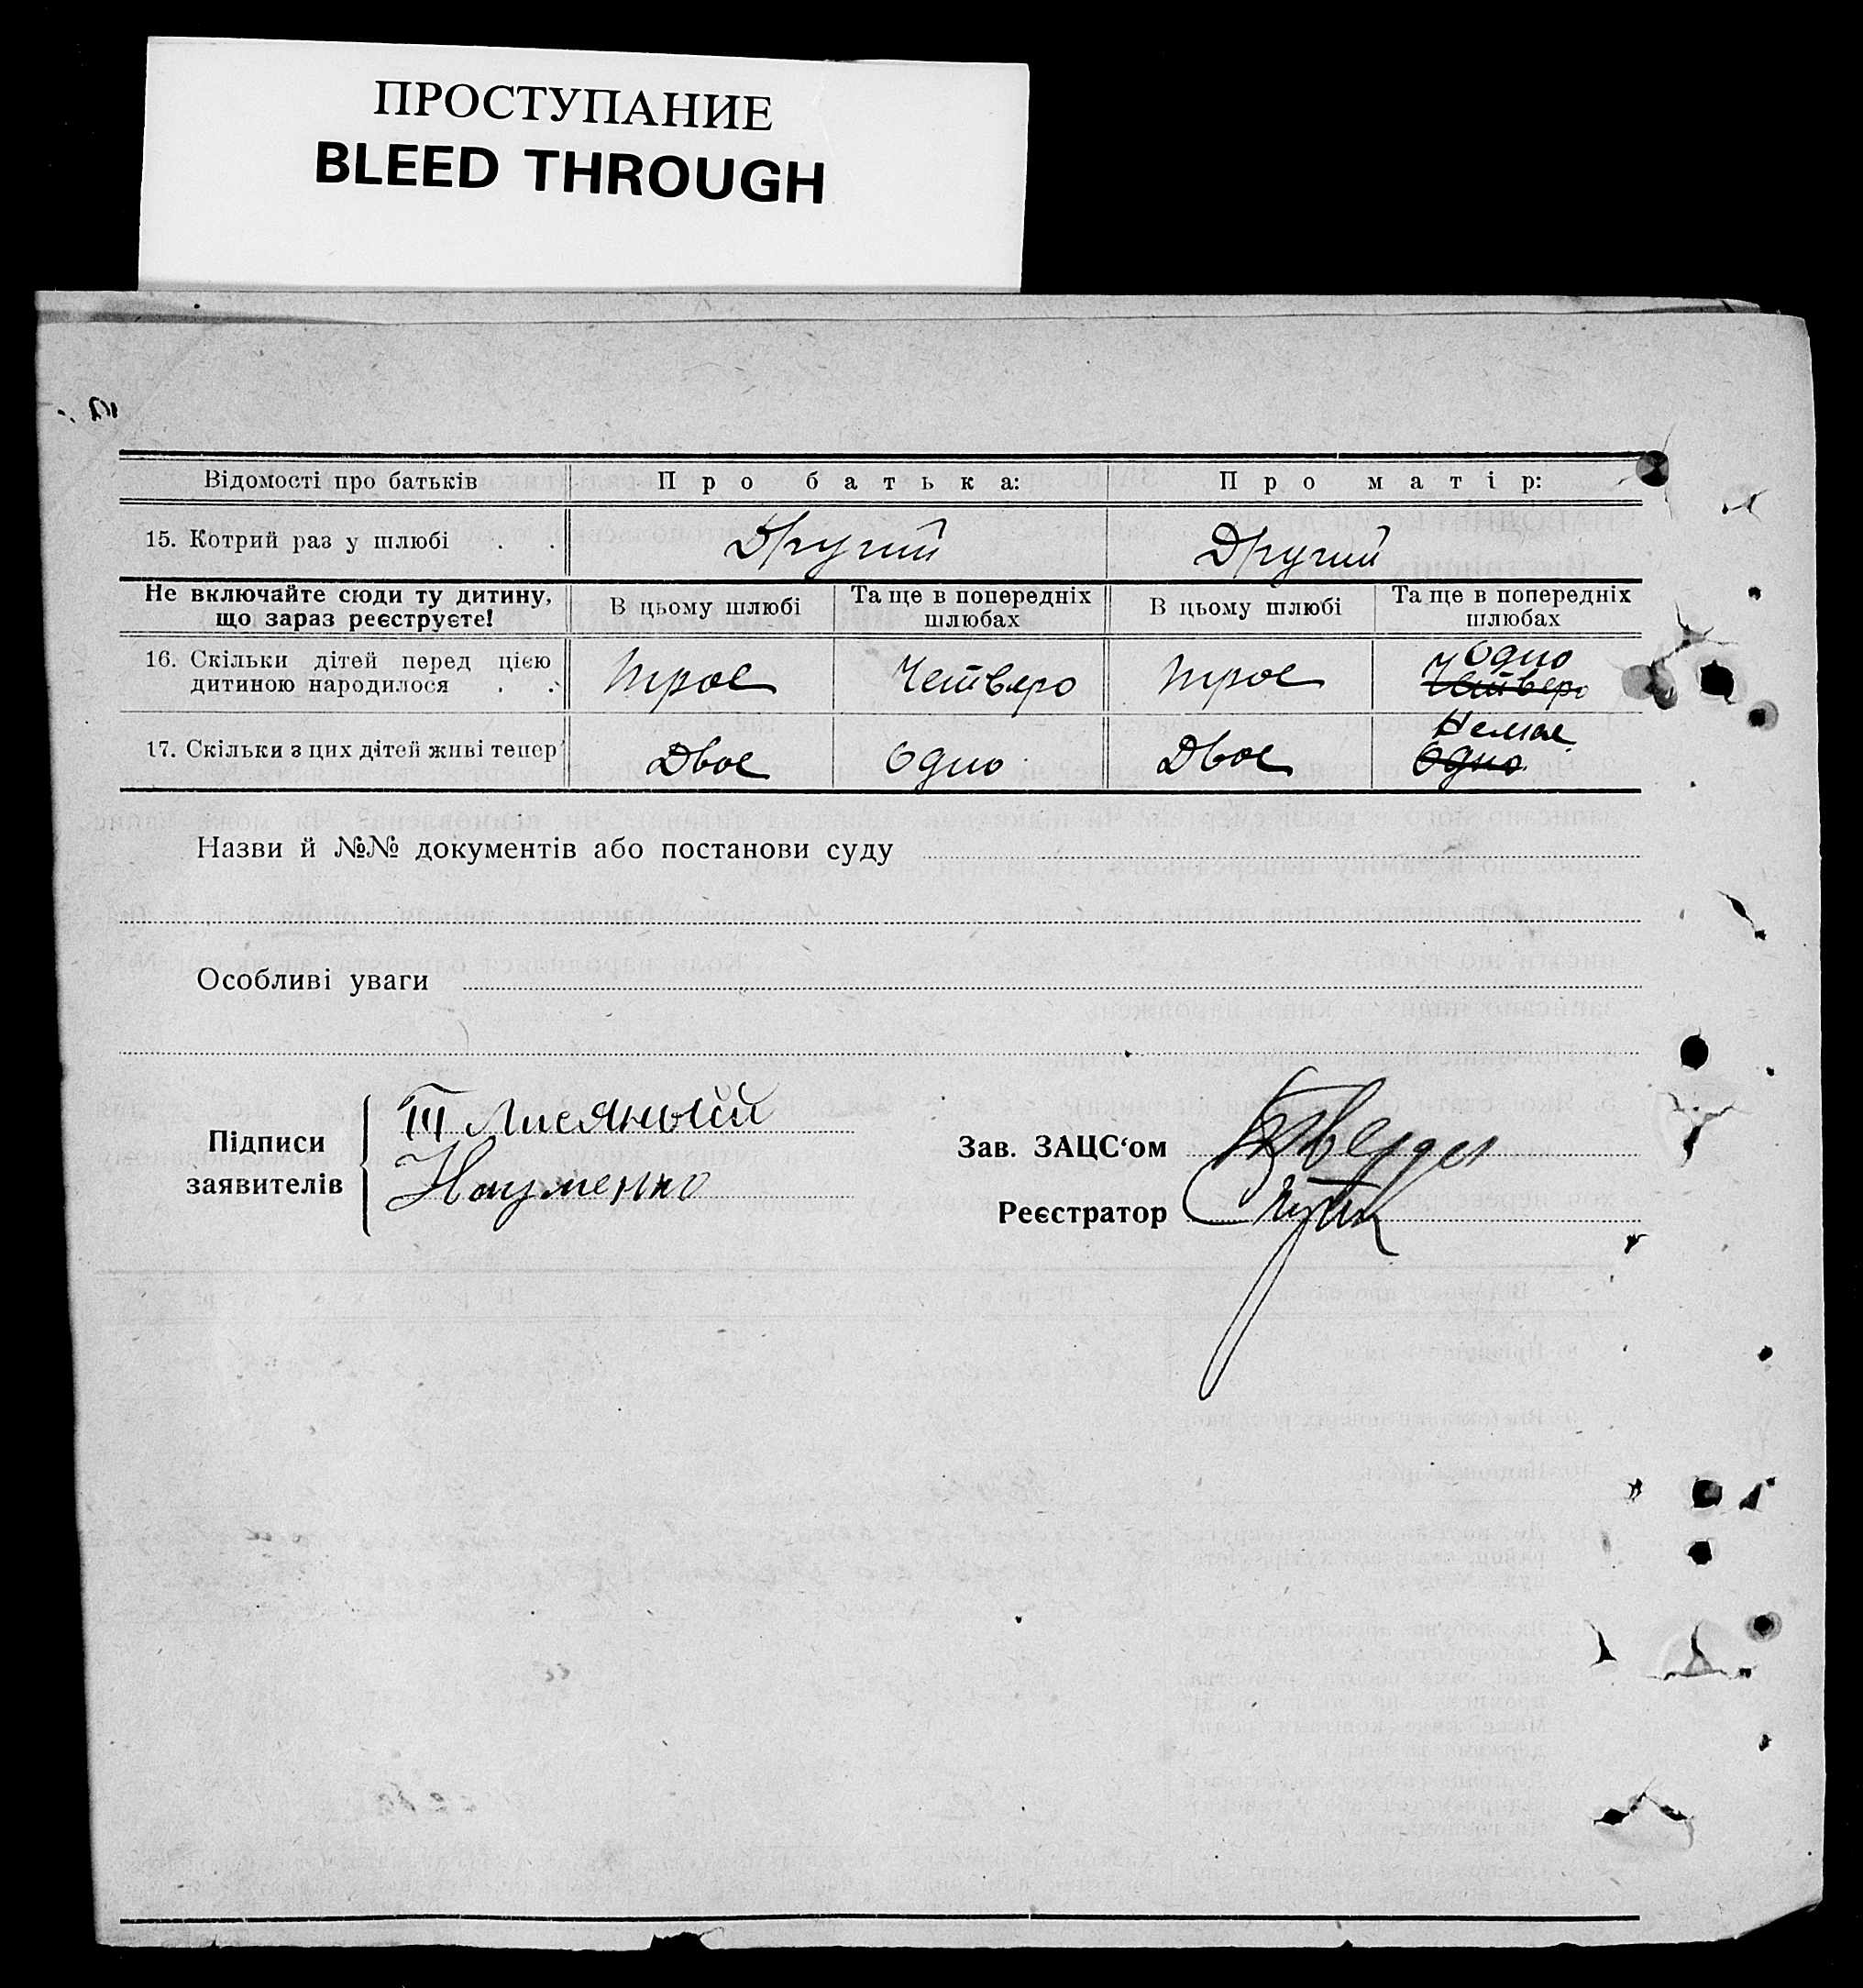 ПРОСТУПАНИЕ
BLEED THROUGH
Відомості про батьків Про батька: Про матір:
15. Котрий раз у шлюбі . . Другий Другий
Не включайте сюди ту дитину, що зараз реєструєте! В цьому шлюбі Та ще в попередніх шлюбах В цьому шлюбі Та ще в попередніх шлюбах
Одно
16. Скільки дітей перед цією дитиною народилося . . Трое Четверо Трое Четверо
Немає
17. Скільки з цих дітей живі тепер Двоє Одно Двоє Одно
Назви й №№ документів або постанови суду
Особливі уваги
Підписи заявителів
Лисяный
Науменко
Зав. ЗАЦС‘ом
Реєстратор